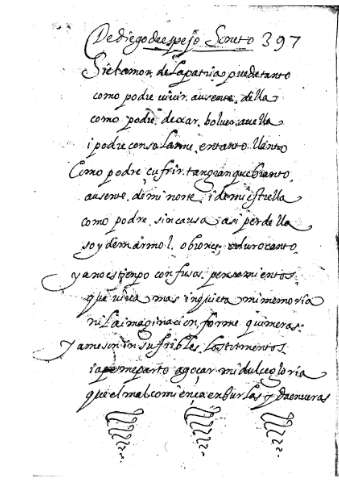 De diego despejo Soneto 397
Si el amor de la patria puede tanto
como podre vivir ausente della
como podre dexar bolver a vella
i podre consolarme en tanto llanto
Como podre çufrir tan gran quebranto
ausente de mi norte i de mi estrella
como podre sin causa asi perdella
soy de marmol o bronce duro canto
ya no es tienpo confusos pensamientos
que viva mas inquieta mi memoria
ni la imaginacion forme quimeras
ya me son insufribles los tormentos
i a goçar mi dulce gloria
que el mal comiença en burlas y da en veras